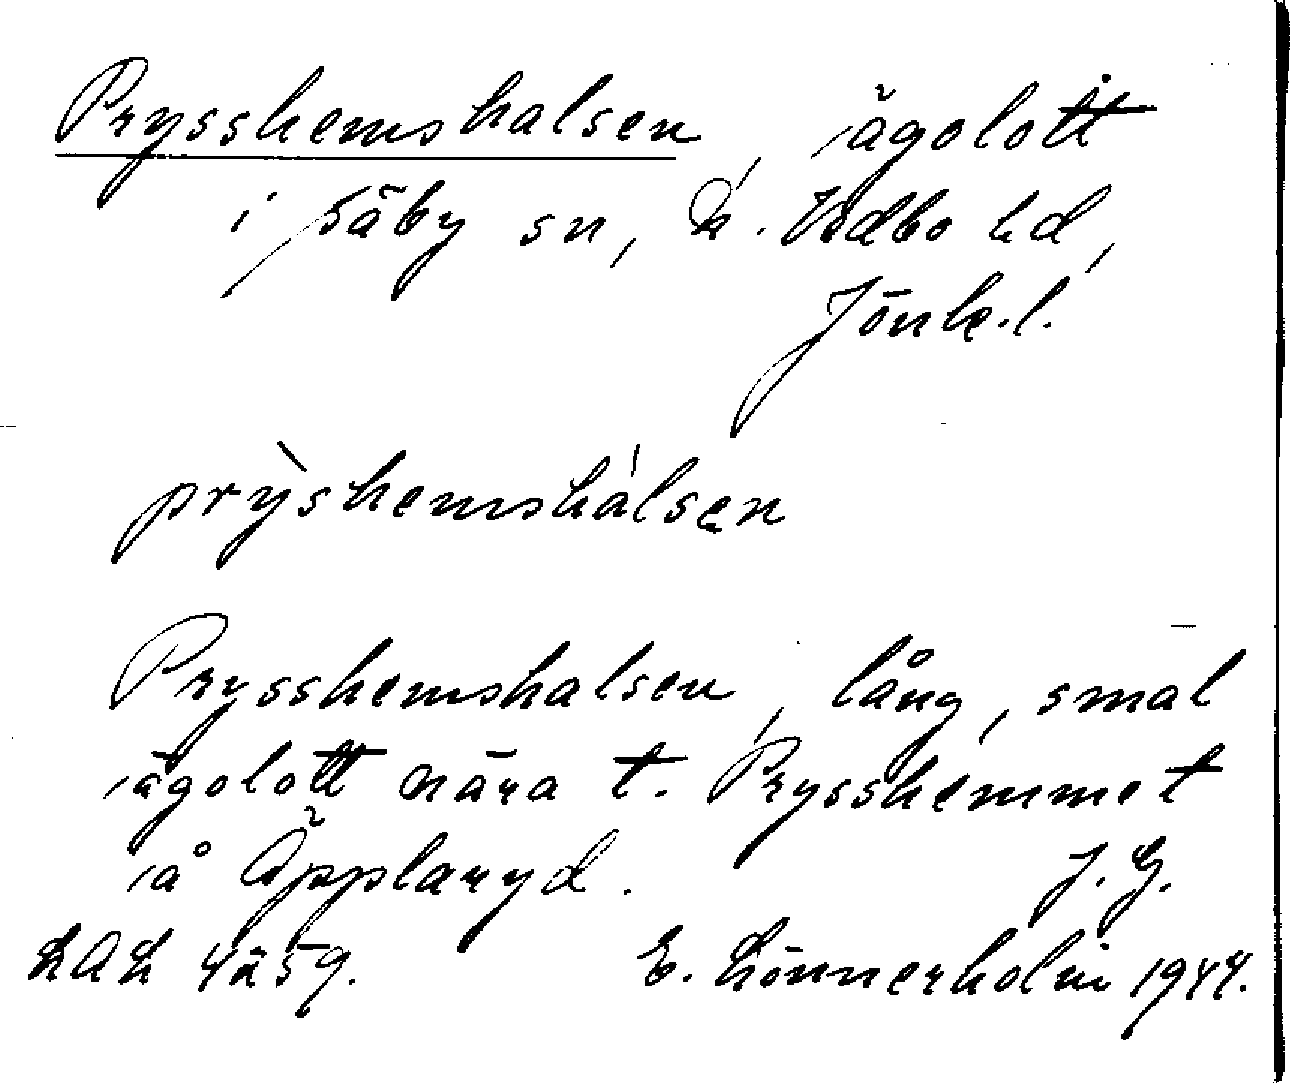 Prysshemshalsen, ägolott
i Säby sn, N. Vedbo hd,
Jönk. l.
prỳshemshálsen
Prysshemshalsen, lång, smal
ägolott nära t. Prysshemmet
å Äpplaryd. J. G.
E. Lönnerholm 1944.